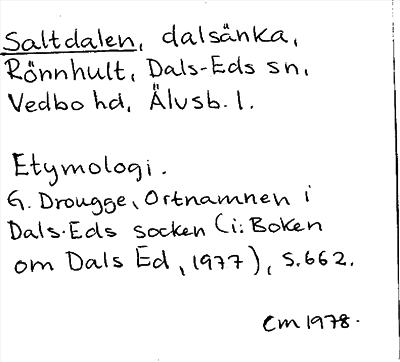 Saltdalen, dalsänka,
Rönnhult, Dals-Eds sn,
Vedbo hd, Älvsb. l.
Etymologi.
G. Drougge, Ortnamnen i
Dals-Eds socken (i: Boken
om Dals Ed, 1977), s. 662.
CM 1978.